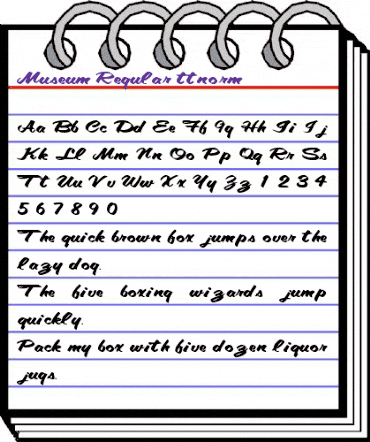 Museum Regular ttnorm
Aa Bb Cc Dd Ee Ff Gg Hh Ii Jj
Kk Ll Mm Nn Oo Pp Qq Rr Ss
Tt Uu Vv Ww Xx Yy Zz 1 2 3 4
5 6 7 8 9 0
The quick brown fox jumps over the
lazy dog.
The five boxing wizards jump
quickly.
Pack my box with five dozen liquor
jugs.